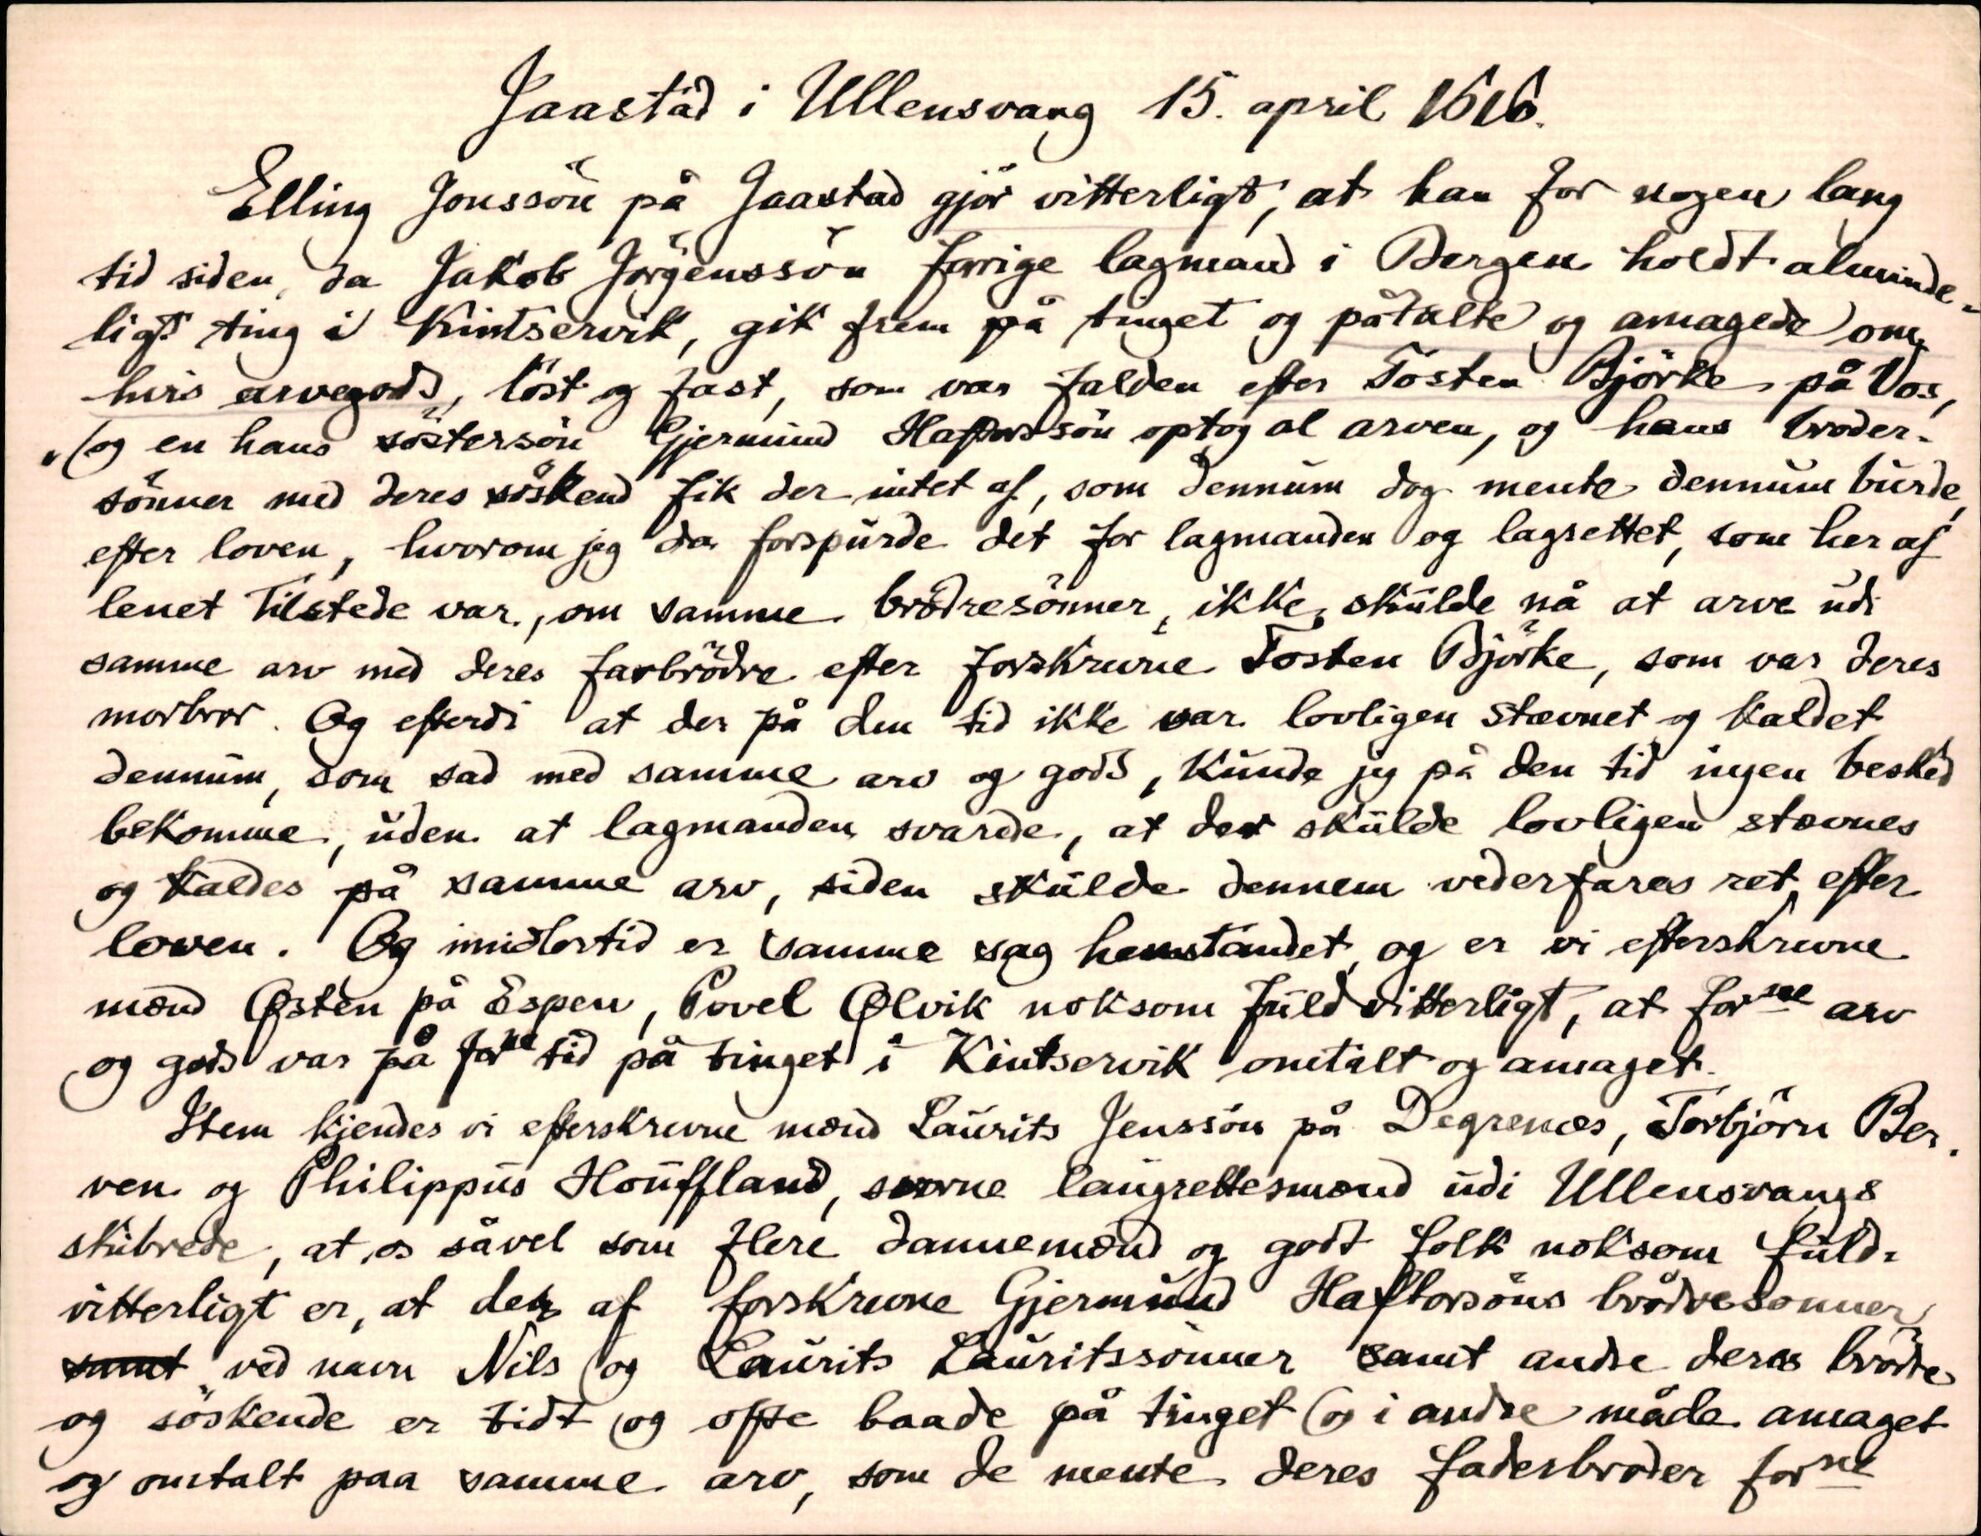 Jaastad i Ullensvang 15. april 1616.
Elling Jonssön på Jaastad gjör vitterligt, at han for nogen lang
tid siden, da Jakob Jörgenssön forrige lagmand i Bergen holdt alminde-
ligt ting i Kintservik, gik frem på tinget og påtalte og amagede om
hvis arvegods, löst og fast, som var falden efter Tosten Björke på Vos,
og en hans söstersön Gjermund Haftorssön optog al arven, og hans broder-
sönner med deres söskend fik der intet af, som dennum dog mente dennum burde
efter loven, hvorom jeg da forspurde det for lagmanden og lagrettet, som her af
lenet tilstede var, om samme brödresönner, ikke, skulde nå at arve udi
samme arv med deres farbrödre efter forskrevne Tosten Björke, som var deres
morbror. Og efterdi at der på den tid ikke var lovligen stævnet og kaldet
dennum, som sad med samme arv og gods, kunde jeg på den tid ingen besked
bekomme, uden at lagmanden svarde, at der skulde lovligen stævnes
og kaldes på samme arv, siden skulde dennem vederfares ret efter
loven. Og imidlertid er samme sag henstandet, og er vi efterskrevne
mænd Østen på Espen, Povel Ølvik noksom fuldvitterligt, at forne arv
og gods var på forne tid på tinget i Kintservik omtalt og amaget.
Item kjendes vi efterskrevne mænd Laurits Jenssön på Degrenæs, Torbjörn Ber-
ven og Philippus Houffland, sorne laugrettesmænd udi Ullensvangs
skibrede, at os såvel som flere dannemænd og godt folk noksom fuld-
vitterligt er, at der af forskrevne Gjermund Haftorsöns brödresönner
samt ved navn Nils og Laurits Lauritssönner samt andre deres brödre
og söskende er tidt og ofte baade på tinget og i andre måde amaget
og omtalt paa samme arv, som de mente deres faderbroder forne